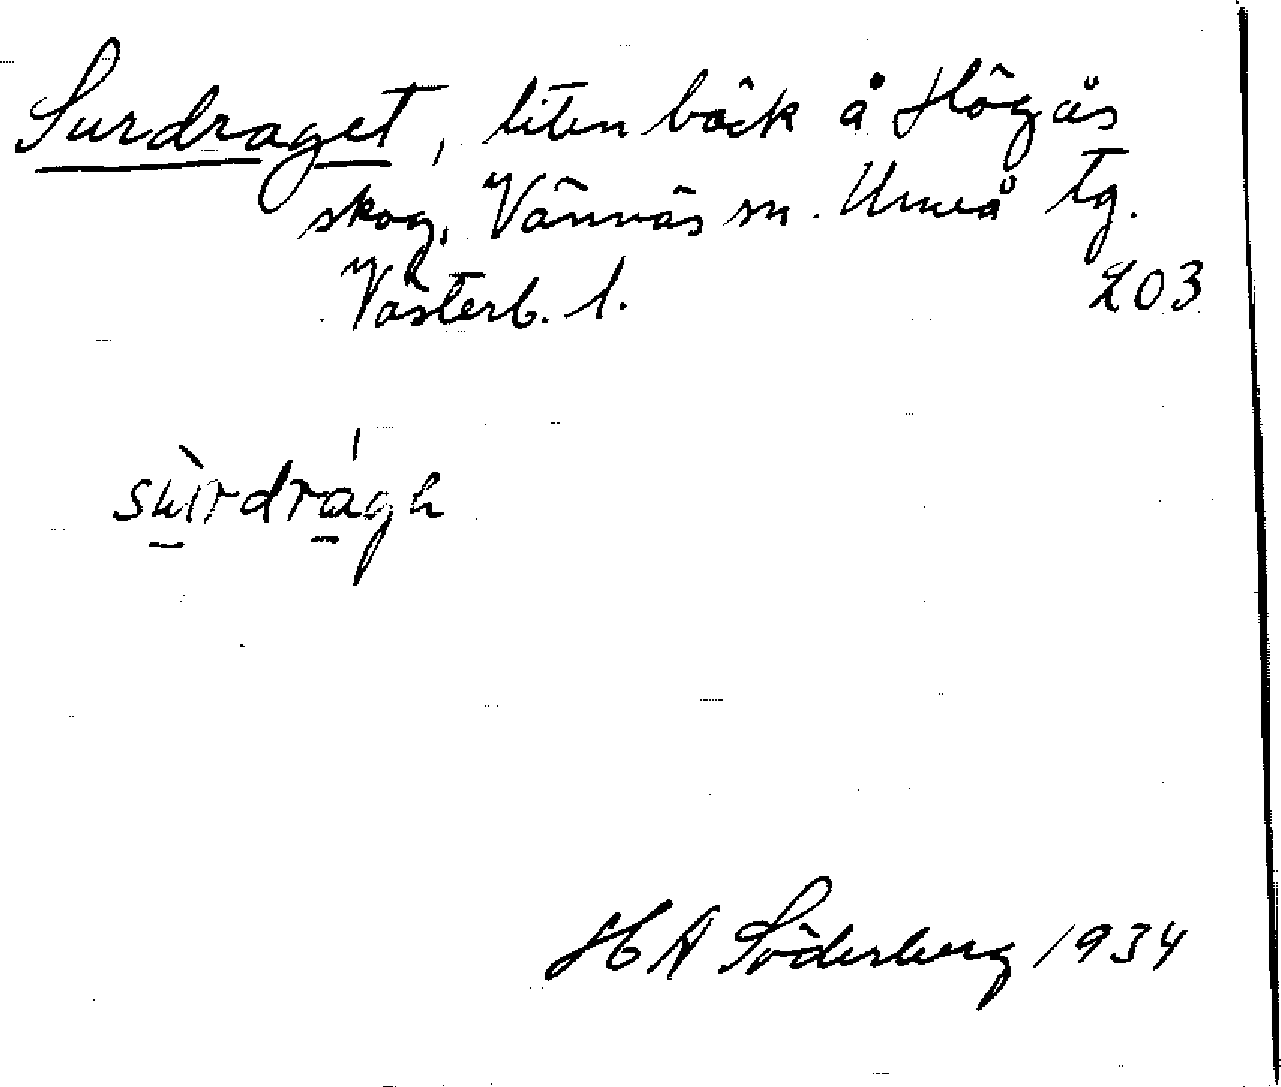 Surdraget, liten bäck å Högås
skog, Vännäs sn. Umeå tg.
Västerb. l. 203
sùrdrágh
H A Söderberg 1934